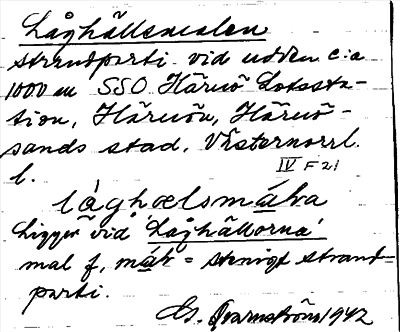 Låghällsmalen
strandparti vid udden c:a
1000 m SSO Härnö Lotssta-
tion, Härnön, Härnö-
sands stad. Västernorrl.
l.
IV F21
låghælsmáłra
Ligger vid "Låghällorna"
mal f, = stenigt strand-
parti.
Qvarnström 1942